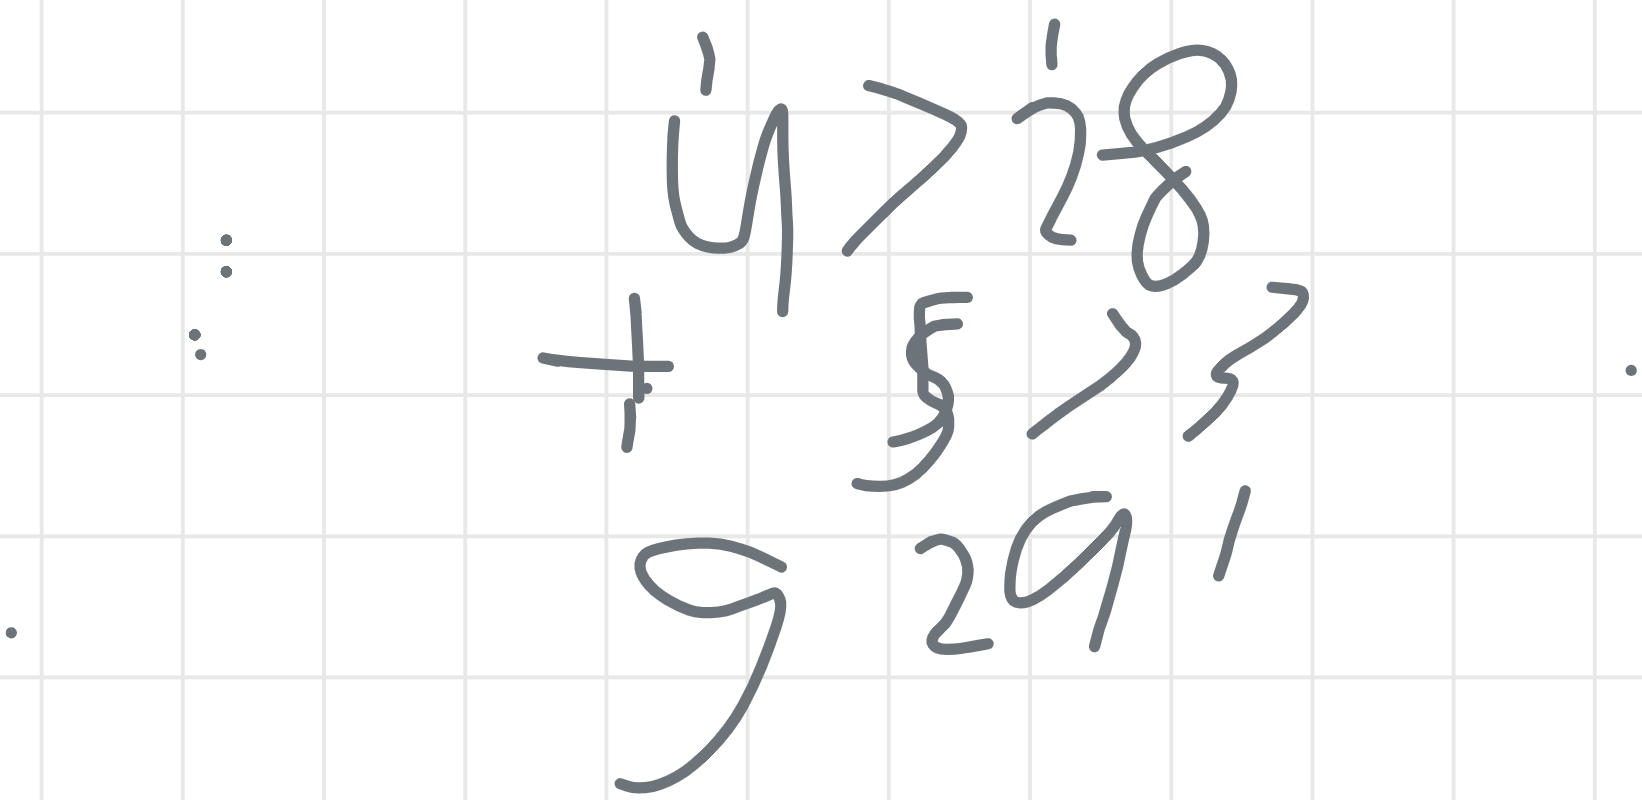 1 1
4728
+ 573
9291